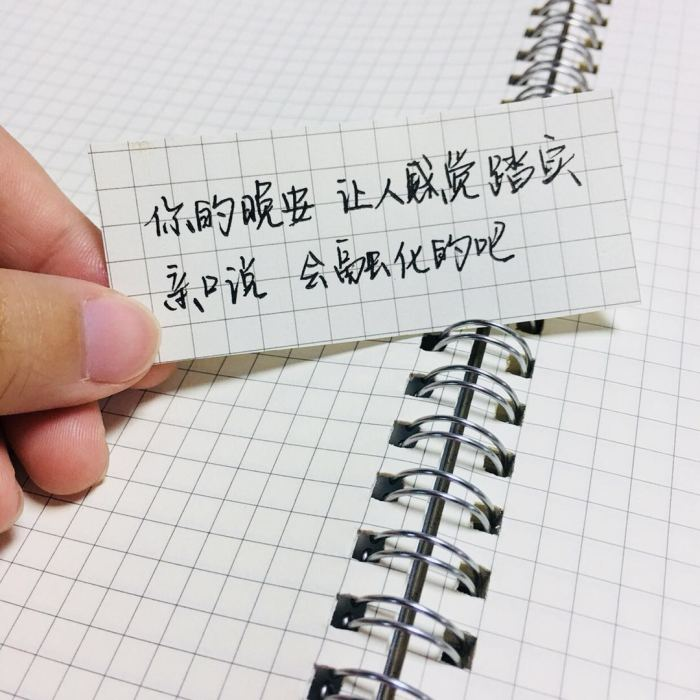 你的晚安 让人感觉踏实
亲口说 会融化的吧